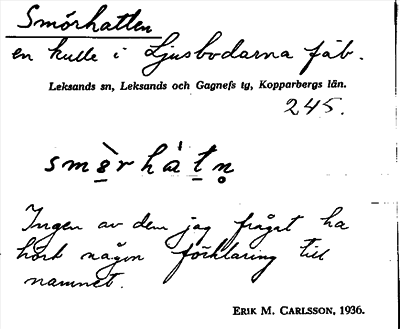 Smörhatten
en kulle i Ljusbodarna fäb.
Leksands sn, Leksands och Gagnefs tg, Kopparbergs län.
245.
smə̀rhàt̠n̥
Ingen av dem jag frågat ha
hört någon förklaring till
namnet.
ERIK M. CARLSSON, 1936.